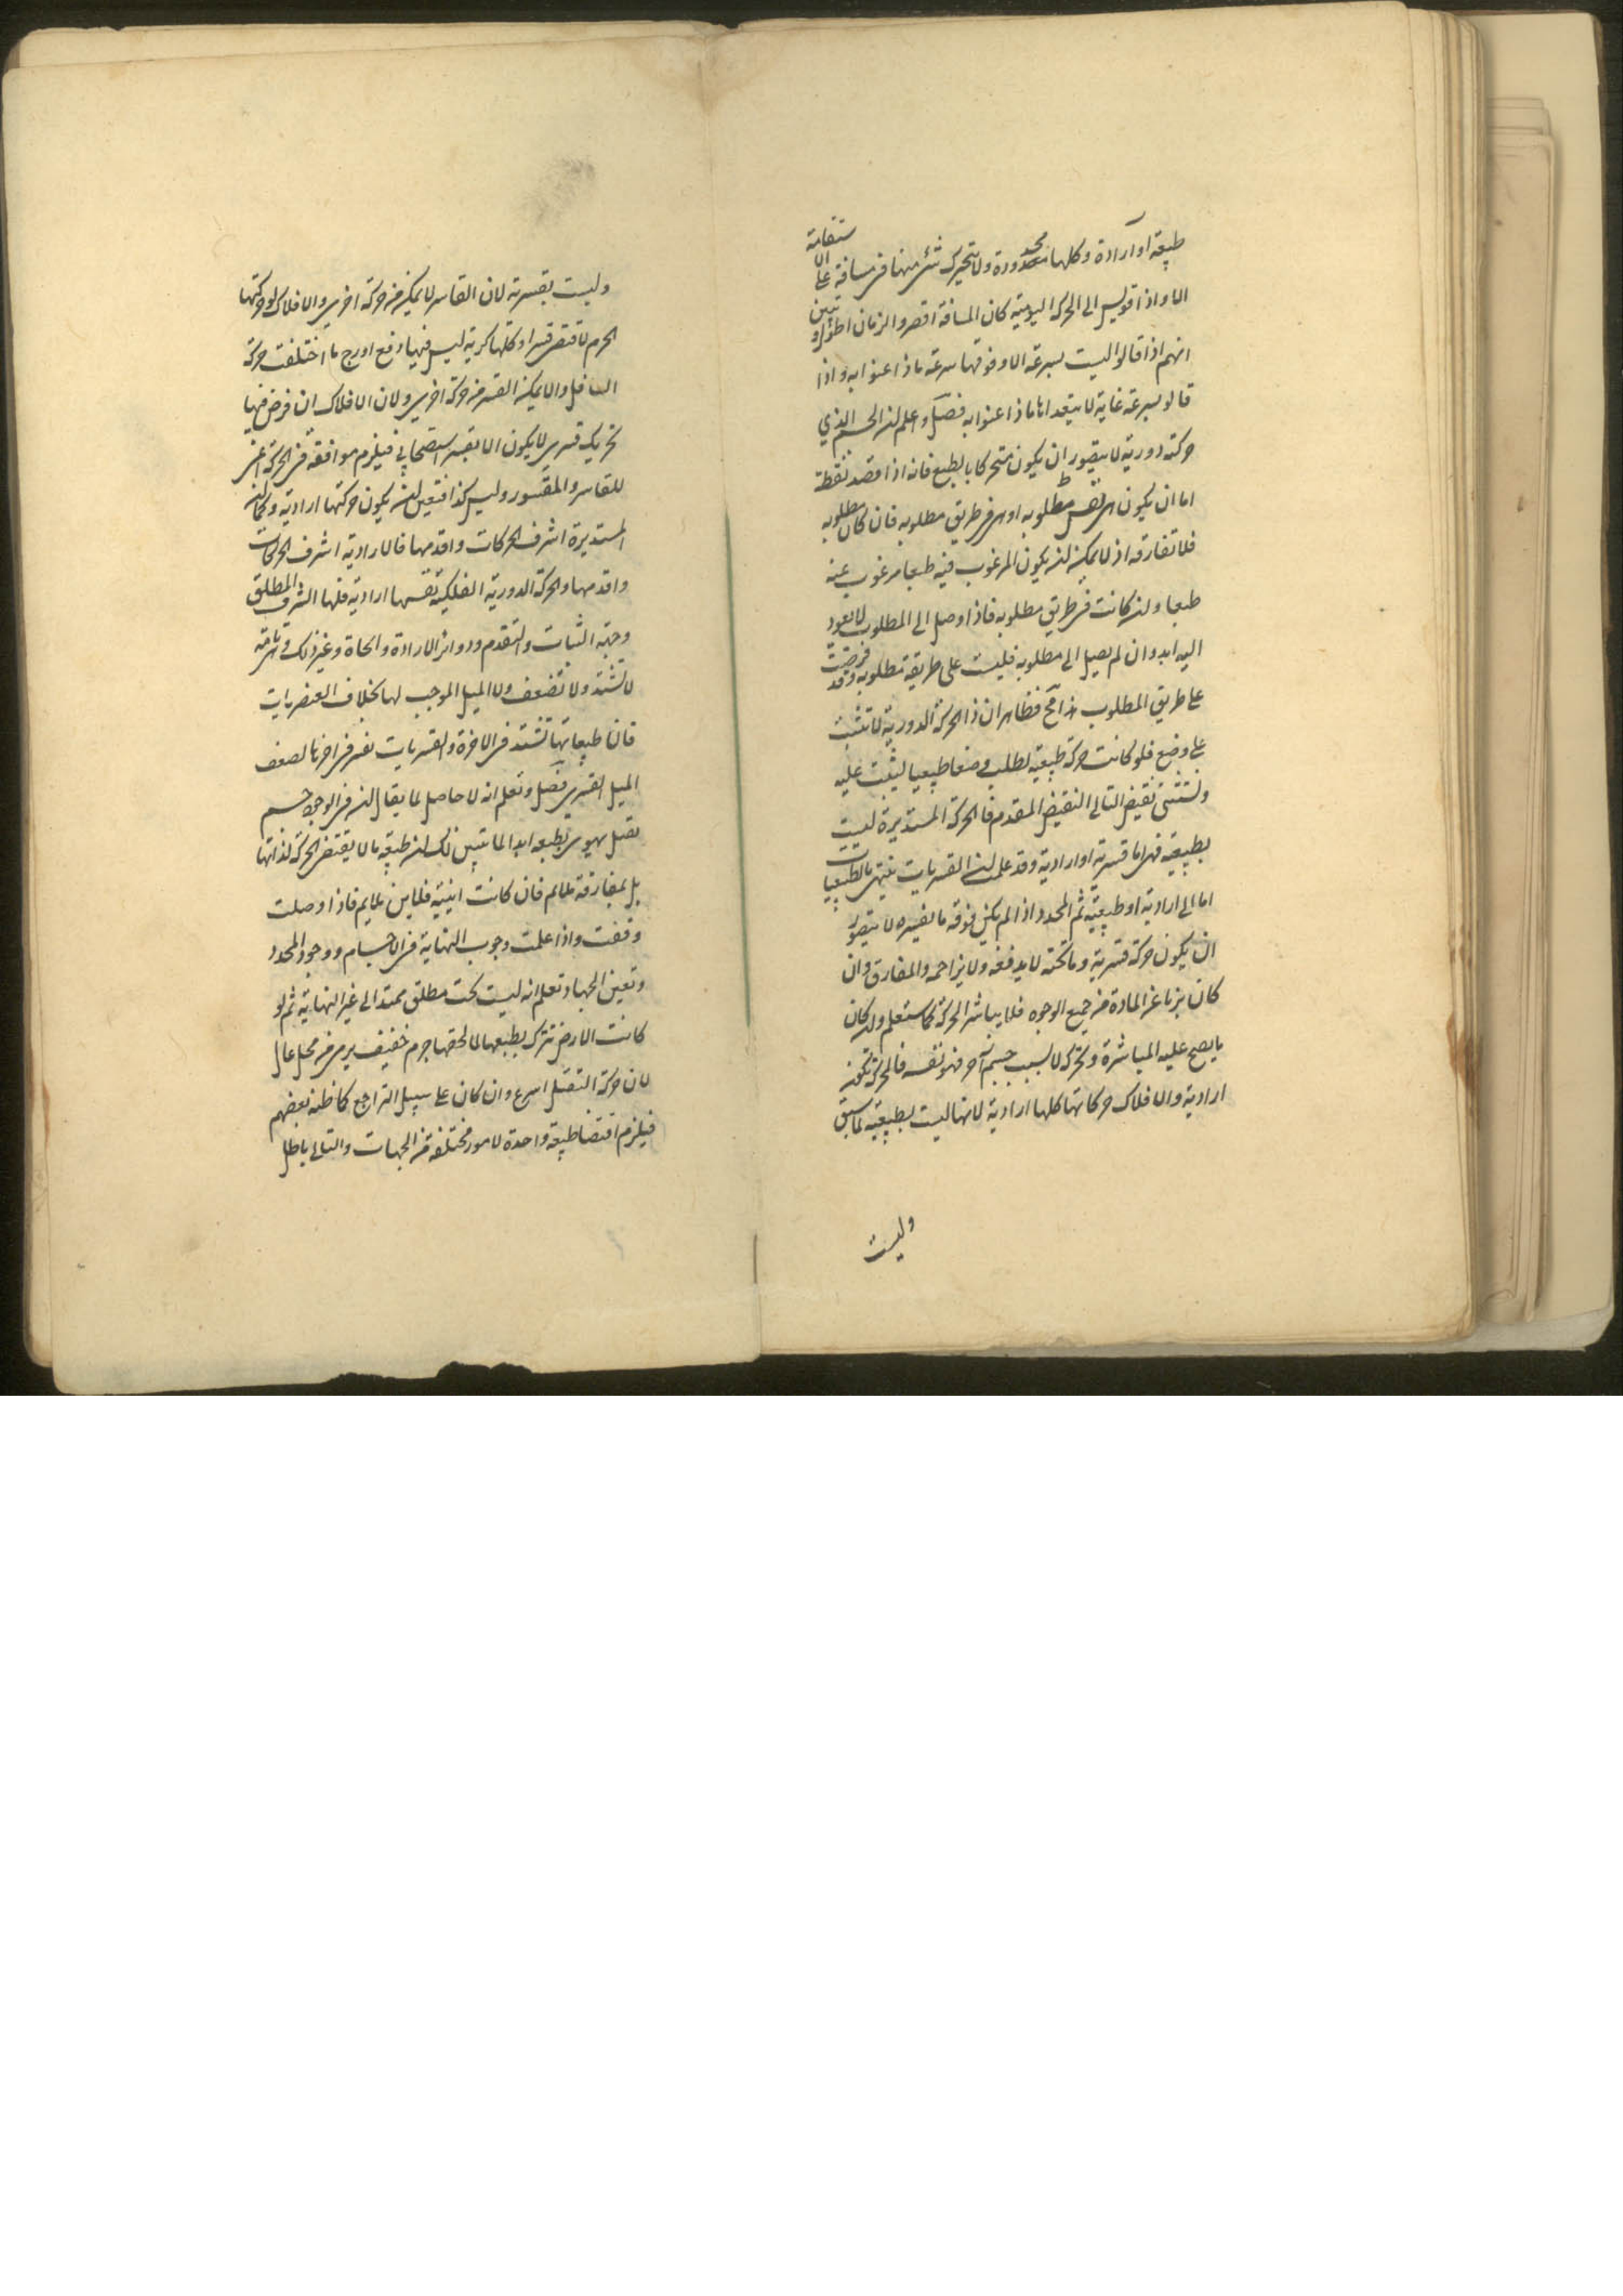 طبيعة او ارادة وكلها محدودة ولا تتحرك شئ منها فى مسافة على الاستقامة
الا واذا قويس الى الحركة اليومية كان المسافة اقصر والزمان اطول وتبين
انهم اذا قالوا ليست بسرعة الا وفوقها سرعة ماذا عنوا به واذا
قالو بسرعة غاية لا يتعداها ماذا عنوا به فصل واعلم ان الجسم الذي
حركته دورية لا يتصور ان يكون متحركا بالطبع فانه اذا قصد نقطة
اما ان يكون هى نفس مطلوبه او هى فى طريق مطلوبه فان كان مطلوبه
فلا تفارقه اذ لا يمكن ان يكون المرغوب فيه طبعا مرغوب عنه
طبعا وان كانت فى طريق مطلوبه فاذا وصل الى المطلوب لا يعود
اليه ابدا وان لم يصل الى مطلوبه فليست على طريقة مطلوبه وقد فرضت
على طريق المطلوب هذا مح فظاهر ان ذا الحركة الدورية لا تثبت
على وضع فلو كانت حركة طبيعية لطلب وضعا طبيعيا ليثبت عليه
ونستثنى نقيض التالى لنقيض المقدم فالحركة المستديرة ليست
بطبيعية فهى اما قسرية او ارادية وقد علم ان القسريات ينتهى بالطبيعيات
اما الى ارادية او طبيعية ثم المحدد اذا لم يكن فوقه ما يقسره لا يتصور
ان يكون حركة قسرية وما تحته لا يدفعه ولا يزاحمه والمفارق وان
كان بريا عن المادة من جميع الوجوه فلا يباشر الحركة كما ستعلم وان كان
ما يصح عليه المباشرة وتحركه لا بسبب جسم آخر فهو نفسه فالحركة تكون
ارادية والافلاك حركاتها كلها ارادية لانها ليست بطبيعية لما سبق
وليست
وليست بقسرية لان القاسر لا يمكن من حركة اخرى والافلاك لو حركتها
الجرم لا قسرا وكلها كرية ليس فيها دفع ما اختلفت حركة
السافل والا يمكنه القسر من حركة اخرى ولان الافلاك ان فرض فيها
تحريك قسرى لا يكون الا بقسر استصحابى فيلزم موافقة فى الحركة اعنى
للقاسر والمقسور وليس كذا فتعين ان يكون حركتها ارادية وكما ان
المستديرة اشرف الحركات واقدمها فالارادية اشرف الحركات
واقدمها والحركة الدورية الفلكية نفسها ارادية فلها الشرف المطلق
وجبة الثبات والتقدم ودوام الارادة والحياة وغير ذلك وهى تامة
لا تشتد ولا تضعف ولا الميل الموجب لها بخلاف العنصريات
فان طبيعياتها تشتد فى الاخرة والقسريات تفتر فى اخرها لضعف
الميل القسرى فصل وتعلم انه لا حاصل لما يقال ان فى الوجود جسم
ثقيل يهوى بطبعه ابدا لما تبين لك ان طبيعة ما لا يقتضى الحركة لذاتها
بل بمفارقة ملايم فان كانت اينية فلاين ملايم فاذا وصلت
وقفت واذا علمت وجوب النهاية فى الاجسام ووجود المحدد
وتعين الجهات تعلم انه ليست تحت مطلق ممتد الى غير النهاية ثم لو
كانت الارض تتحرك بطبعها لما لحقها جرم خفيف يرمى من محل عال
لان حركة الثقيل اسرع وان كان على سبيل التراجع كما ظنه بعضهم
فيلزم اقتضا طبيعة واحدة لامور مختلفة من الجهات والتالى باطل